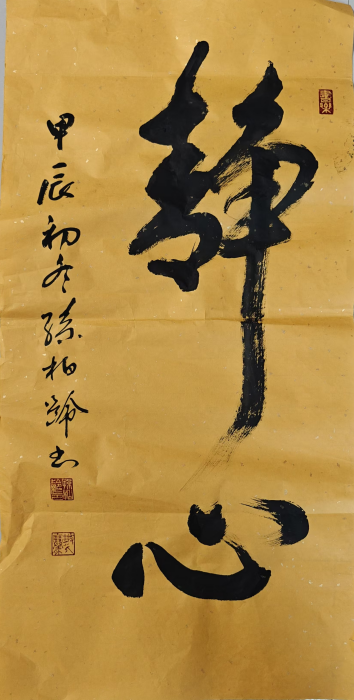 静心
甲辰初冬孫柏齡书